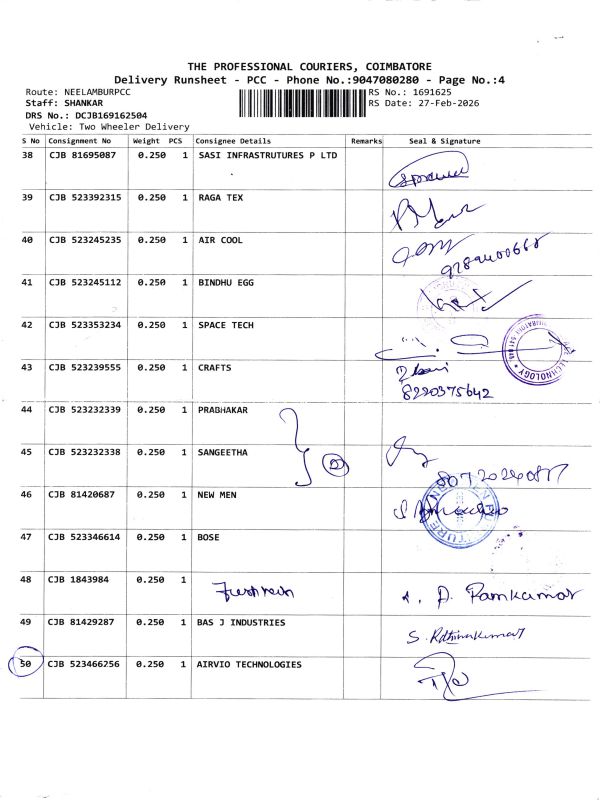 THE PROFESSIONAL COURIERS, COIMBATORE
Delivery Runsheet - PCC - Phone No.:9047080280 - Page No.:4
Route: NEELAMBURPCC
RS No.: 1691625
Staff: SHANKAR
RS Date: 27-Feb-2026
DRS No.: DCJB169162504
Vehicle: Two Wheeler Delivery
S No Consignment No Weight PCS Consignee Details Remarks Seal & Signature
38 CJB 81695087 0.250 1 SASI INFRASTRUTURES P LTD
39 CJB 523392315 0.250 1 RAGA TEX
40 CJB 523245235 0.250 1 AIR COOL
41 CJB 523245112 0.250 1 BINDHU EGG
42 CJB 523353234 0.250 1 SPACE TECH
TECHNOLOGY
43 CJB 523239555 0.250 1 CRAFTS
8220375642
44 CJB 523232339 0.250 1 PRABHAKAR
45 CJB 523232338 0.250 1 SANGEETHA
2
46 CJB 81420687 0.250 1 NEW MEN
47 CJB 523346614 0.250 1 BOSE
48 CJB 1843984 0.250 1
P. Ramkumar
49 CJB 81429287 0.250 1 BAS J INDUSTRIES
50 CJB 523466256 0.250 1 AIRVIO TECHNOLOGIES